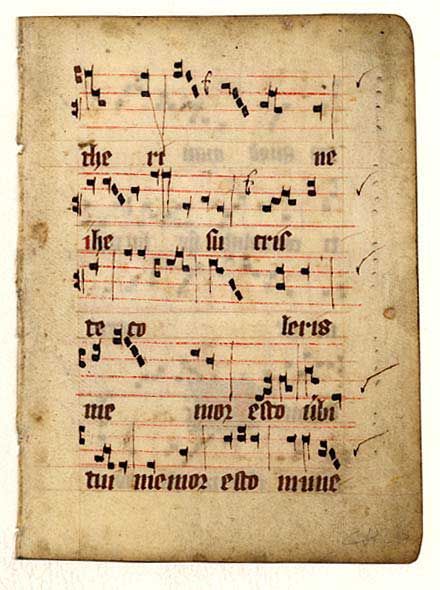 the ri ne
ihe su cris
te co leris
me mor esto
tui memor esto mune